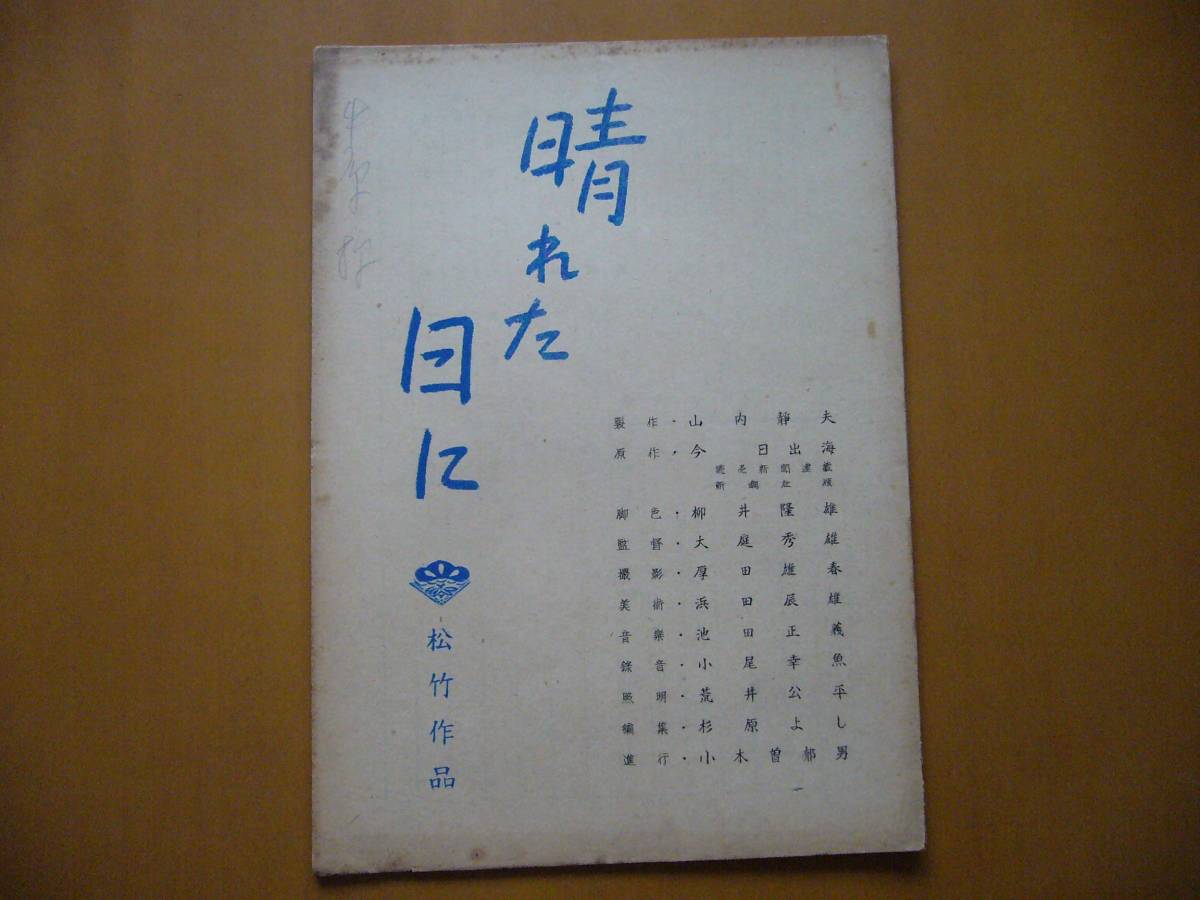 晴れた
日に
松竹作品
製作・山内静夫
原作・今日出海
読売新聞連載
新潮社版
脚色・柳井隆雄
監督・大庭秀雄
撮影・厚田雄春
美術・浜田辰雄
音樂・池田正義
錄音・小尾幸魚
照明・荒井公平
編集・杉原よし
進行・小木曽郁男